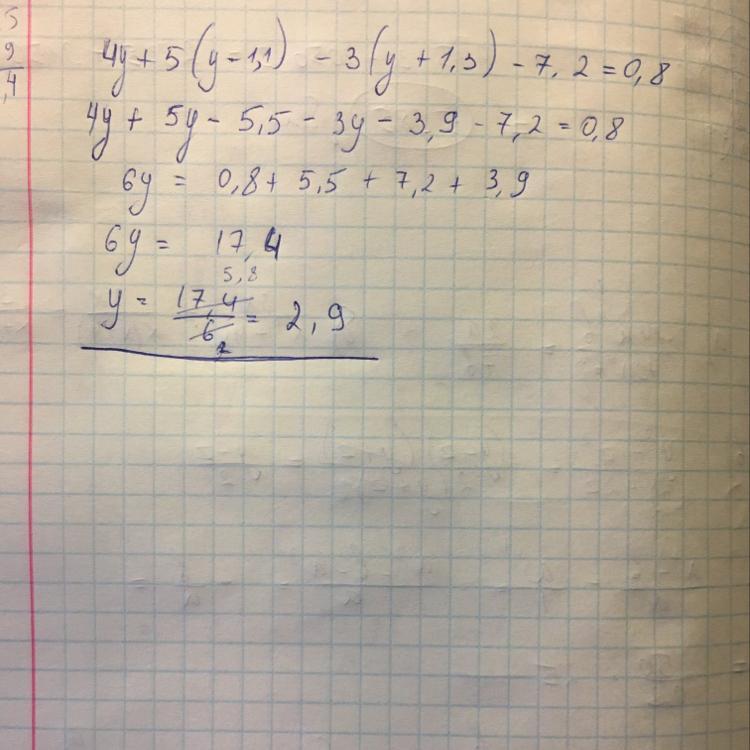 5
9
,4
4y + 5 (y - 1,1) - 3 (y + 1,3) - 7,2 = 0,8
4y + 5y - 5,5 - 3y - 3,9 - 7,2 = 0,8
6y = 0,8 + 5,5 + 7,2 + 3,9
6y = 17,4
5,8
y = 17,4/6 = 2,9
2